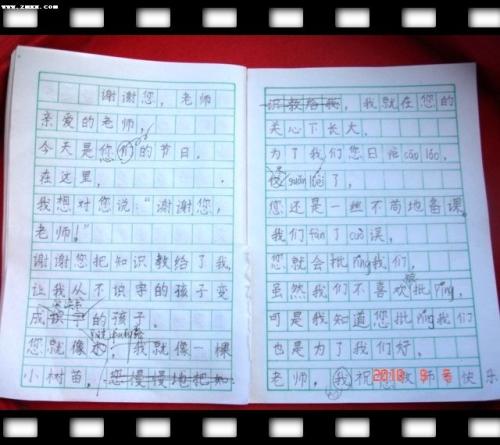 www.zmxx.com
谢谢您，老师
亲爱的老师，
今天是您们的节日，
在这里，
我想对您说："谢谢您，
老师！"
谢谢您把知识教给了我，
让我从不识字的孩子变
成识字的孩子，
您就像水，我就像一棵
小树苗，您慢慢地把知
识教给我，我就在您的
关心下长大。
为了我们您日夜cāo láo，
您还是一丝不苟地备课。
我们fàn了cuò误，
您就会批píng我们，
虽然我们不喜欢批píng，
可是我知道您批píng我们
也是为了我们好。
老师，我祝您教师节快乐